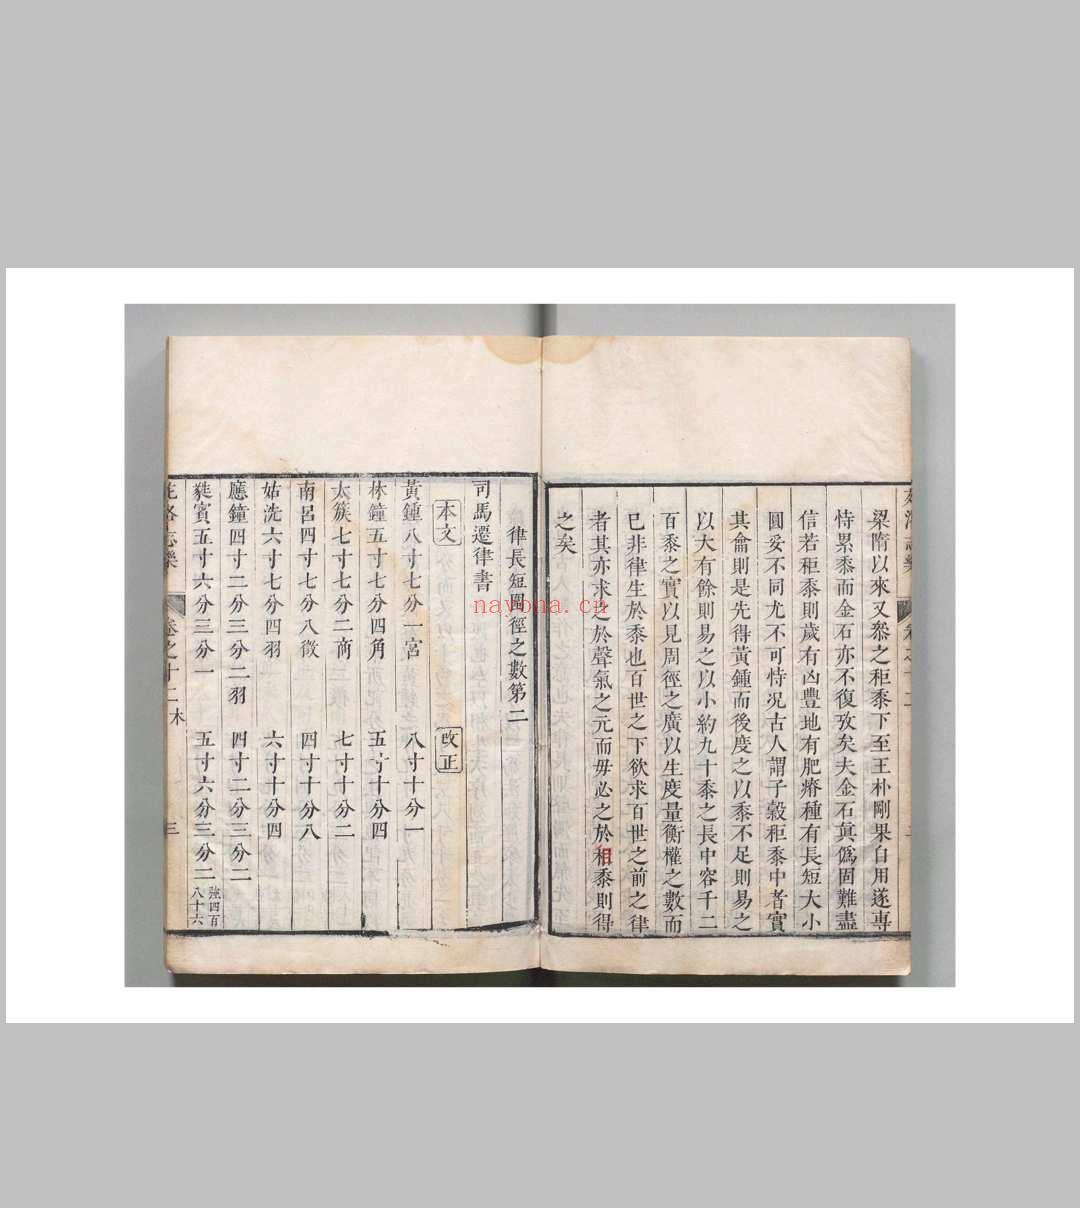 梁隋以來又叅之秬黍下至王朴剛果自用遂專
恃累黍而金石亦不復攷矣夫金石眞僞固難盡
信若秬黍則歲有凶豐地有肥瘠種有長短大小
圓妥不同尤不可恃况古人謂子穀秬黍中者實
其龠則是先得黃鍾而後度之以黍不足則易之
以大有餘則易之以小約九十黍之長中容千二
百黍之實以見周徑之廣以生度量衡權之數而
已非律生於黍也百世之下欲求百世之前之律
者其亦求之於聲氣之元而毋必之於秬黍則得
之矣
律長短圍徑之數第二
司馬遷律書
本文
改正
黃鍾八寸七分一宮 八寸十分一
林鐘五寸七分四角 五寸十分四
太簇七寸七分二商 七寸十分二
南呂四寸七分八徵 四寸十分八
姑洗六寸七分四羽 六寸十分四
應鐘四寸二分三分二羽 四寸二分三分二
蕤賓五寸六分三分一 五寸六分三分二强四百八十六
苑洛志樂
卷之十二
木
三
nayona.cn